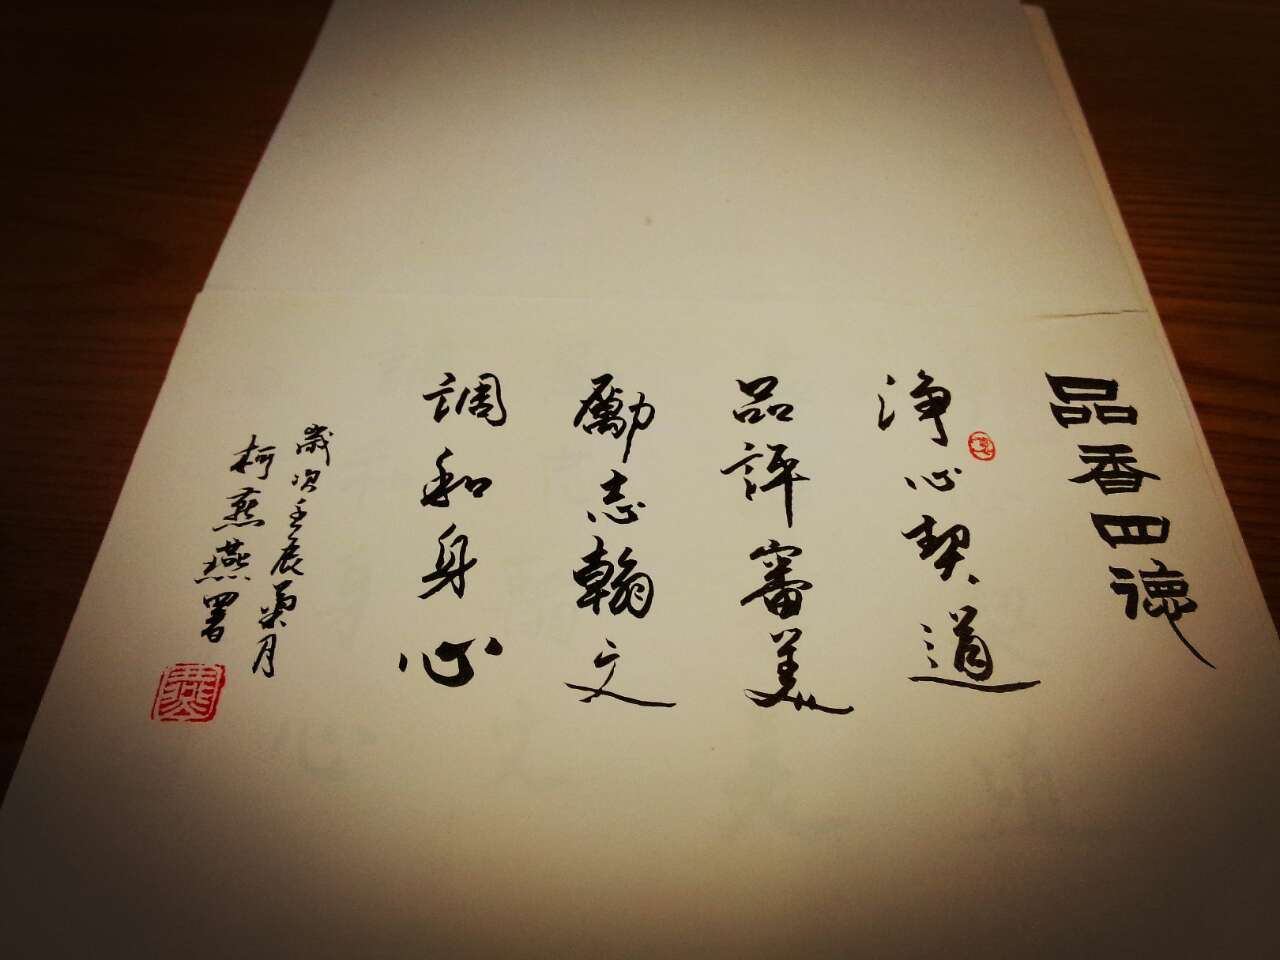 品香四德
淨心契道
品評審美
勵志翰文
調和身心
歲次壬辰菊月
柯燕燕署